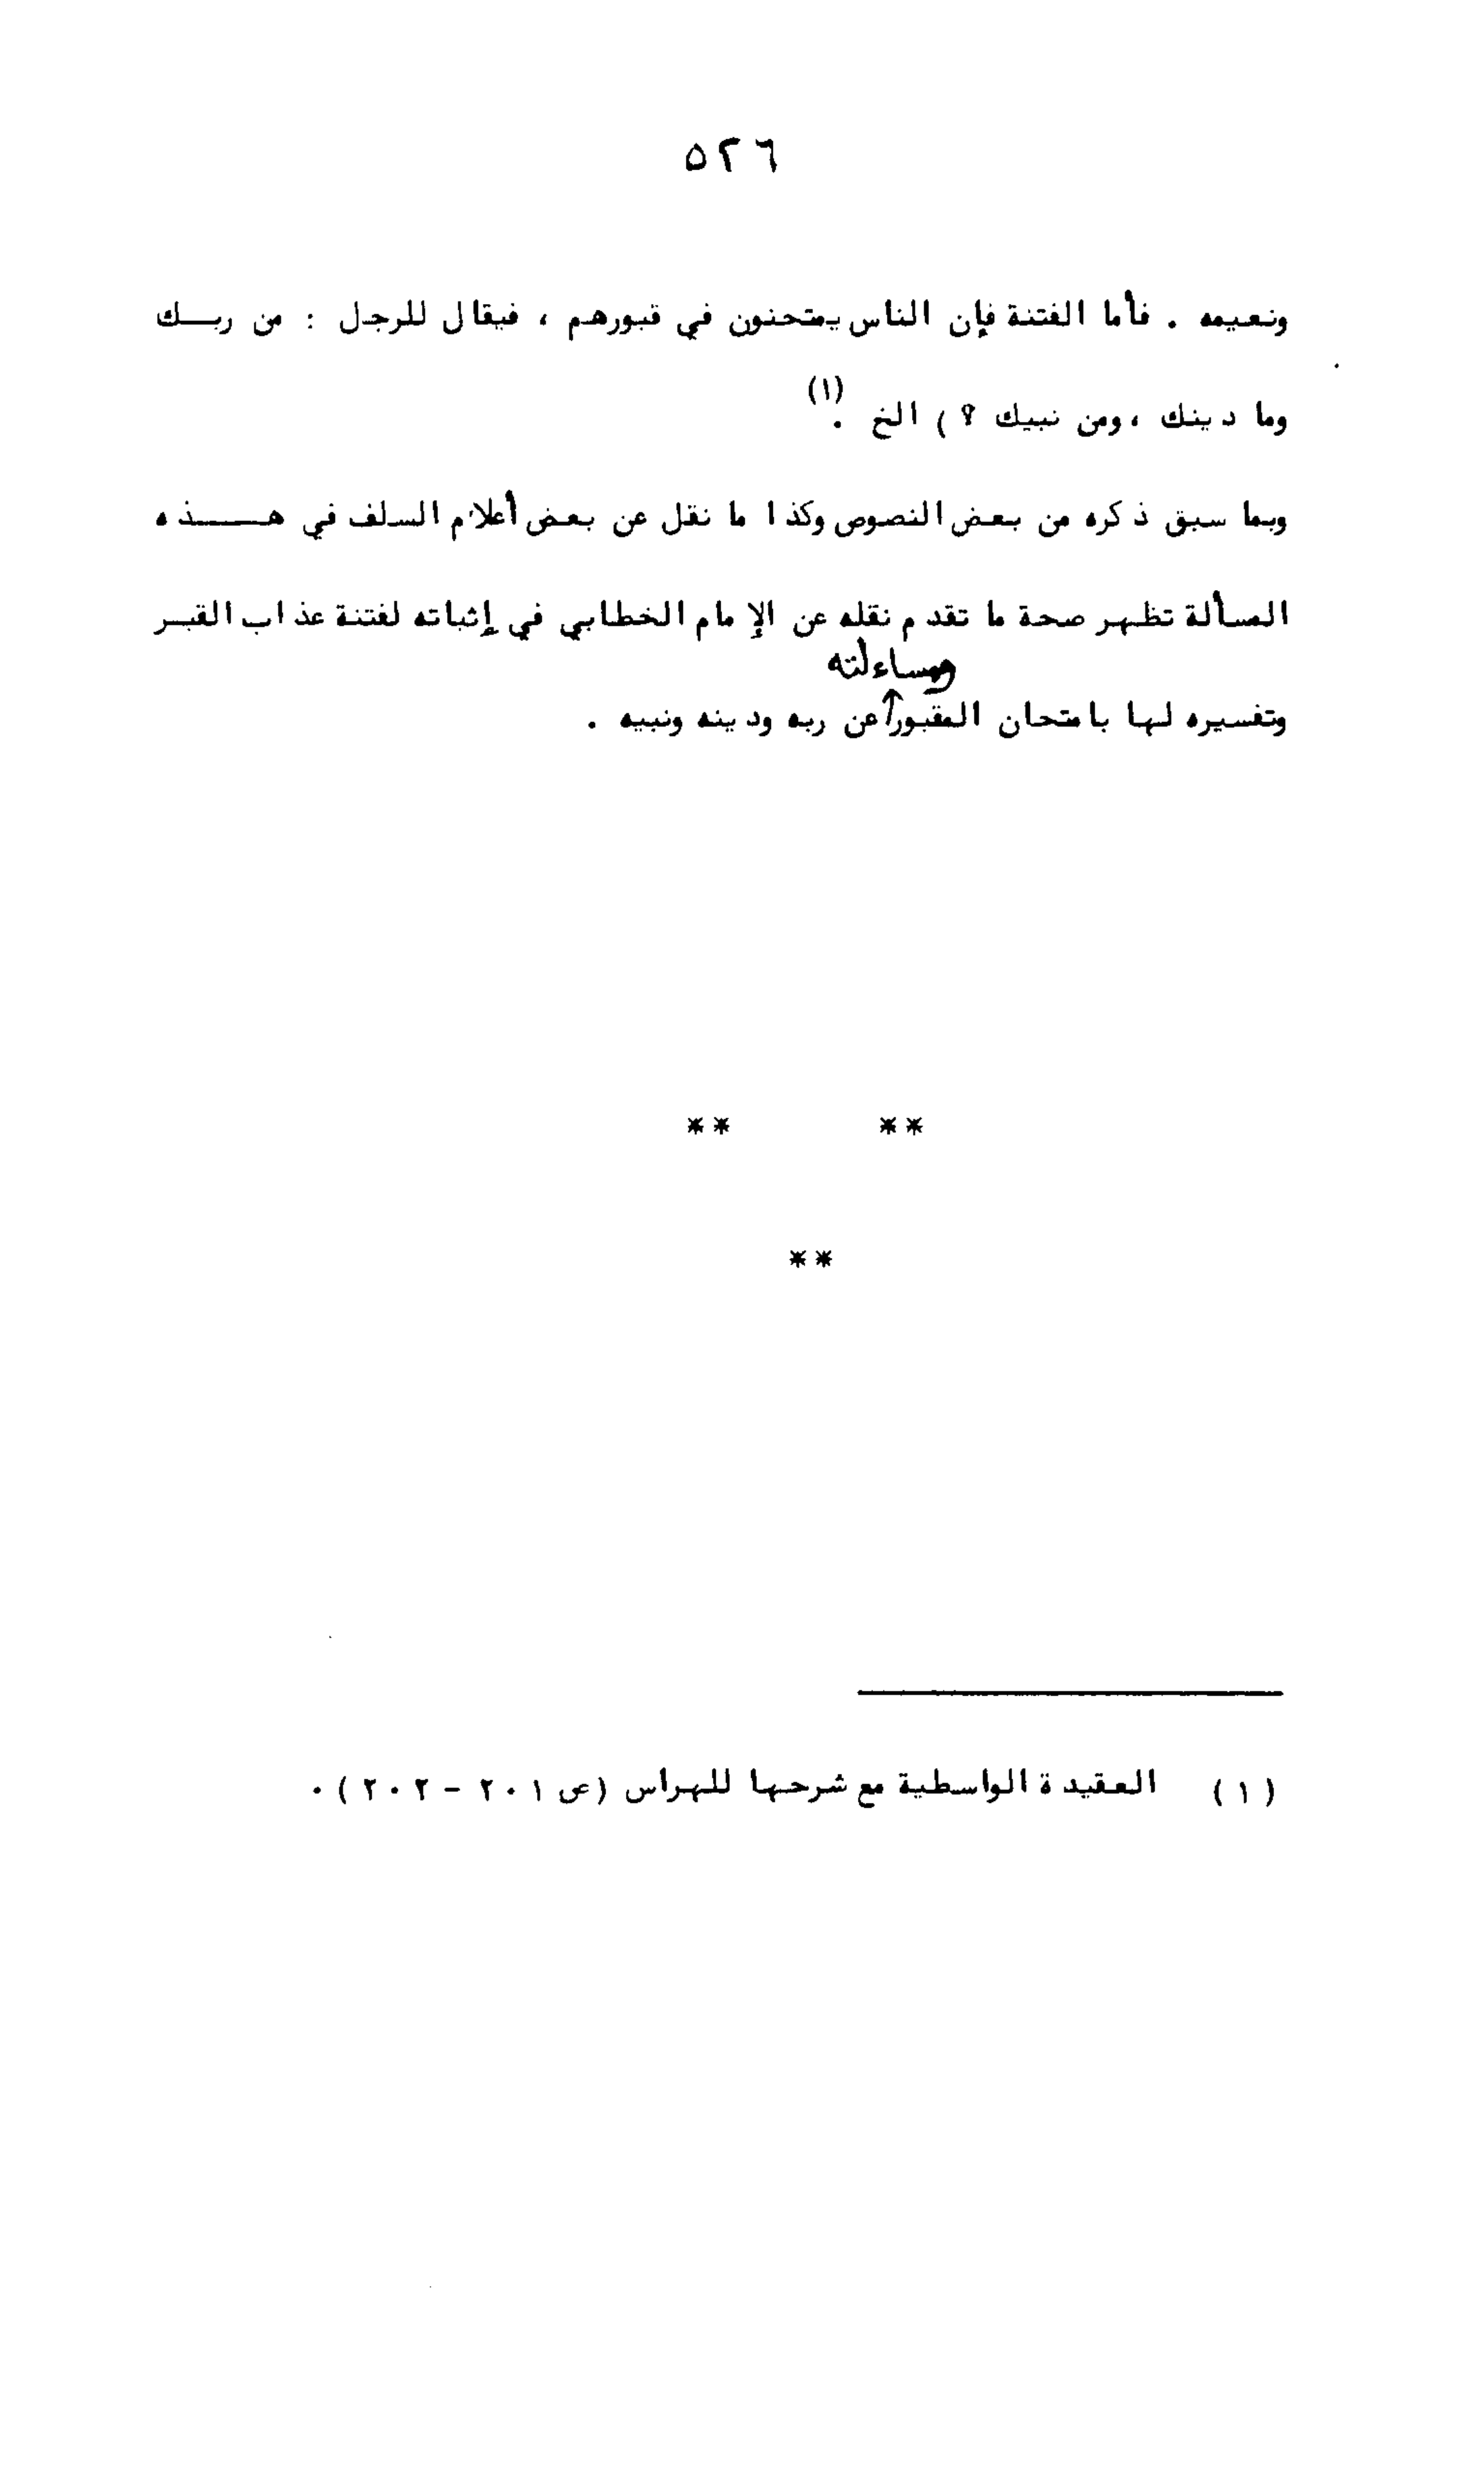 ٥٢٦
ونعيمه . فأما الفتنة فإن الناس يمتحنون في قبورهم ، فيقال للرجل : من ربك
وما دينك ، ومن نبيك ؟ ) الخ .(١)
وبما سبق ذكره من بعض النصوص وكذا ما نقل عن بعض أعلام السلف في هذه
المسألة تظهر صحة ما تقدم نقله عن الإمام الخطابي في إثباته لفتنة عذاب القبر
ومساءلته
وتفسيره لها بامتحان المقبور عن ربه ودينه ونبيه .
** **
**
( ١ ) العقيدة الواسطية مع شرحها للهراس ( ص ٢٠١ - ٢٠٢ ) .